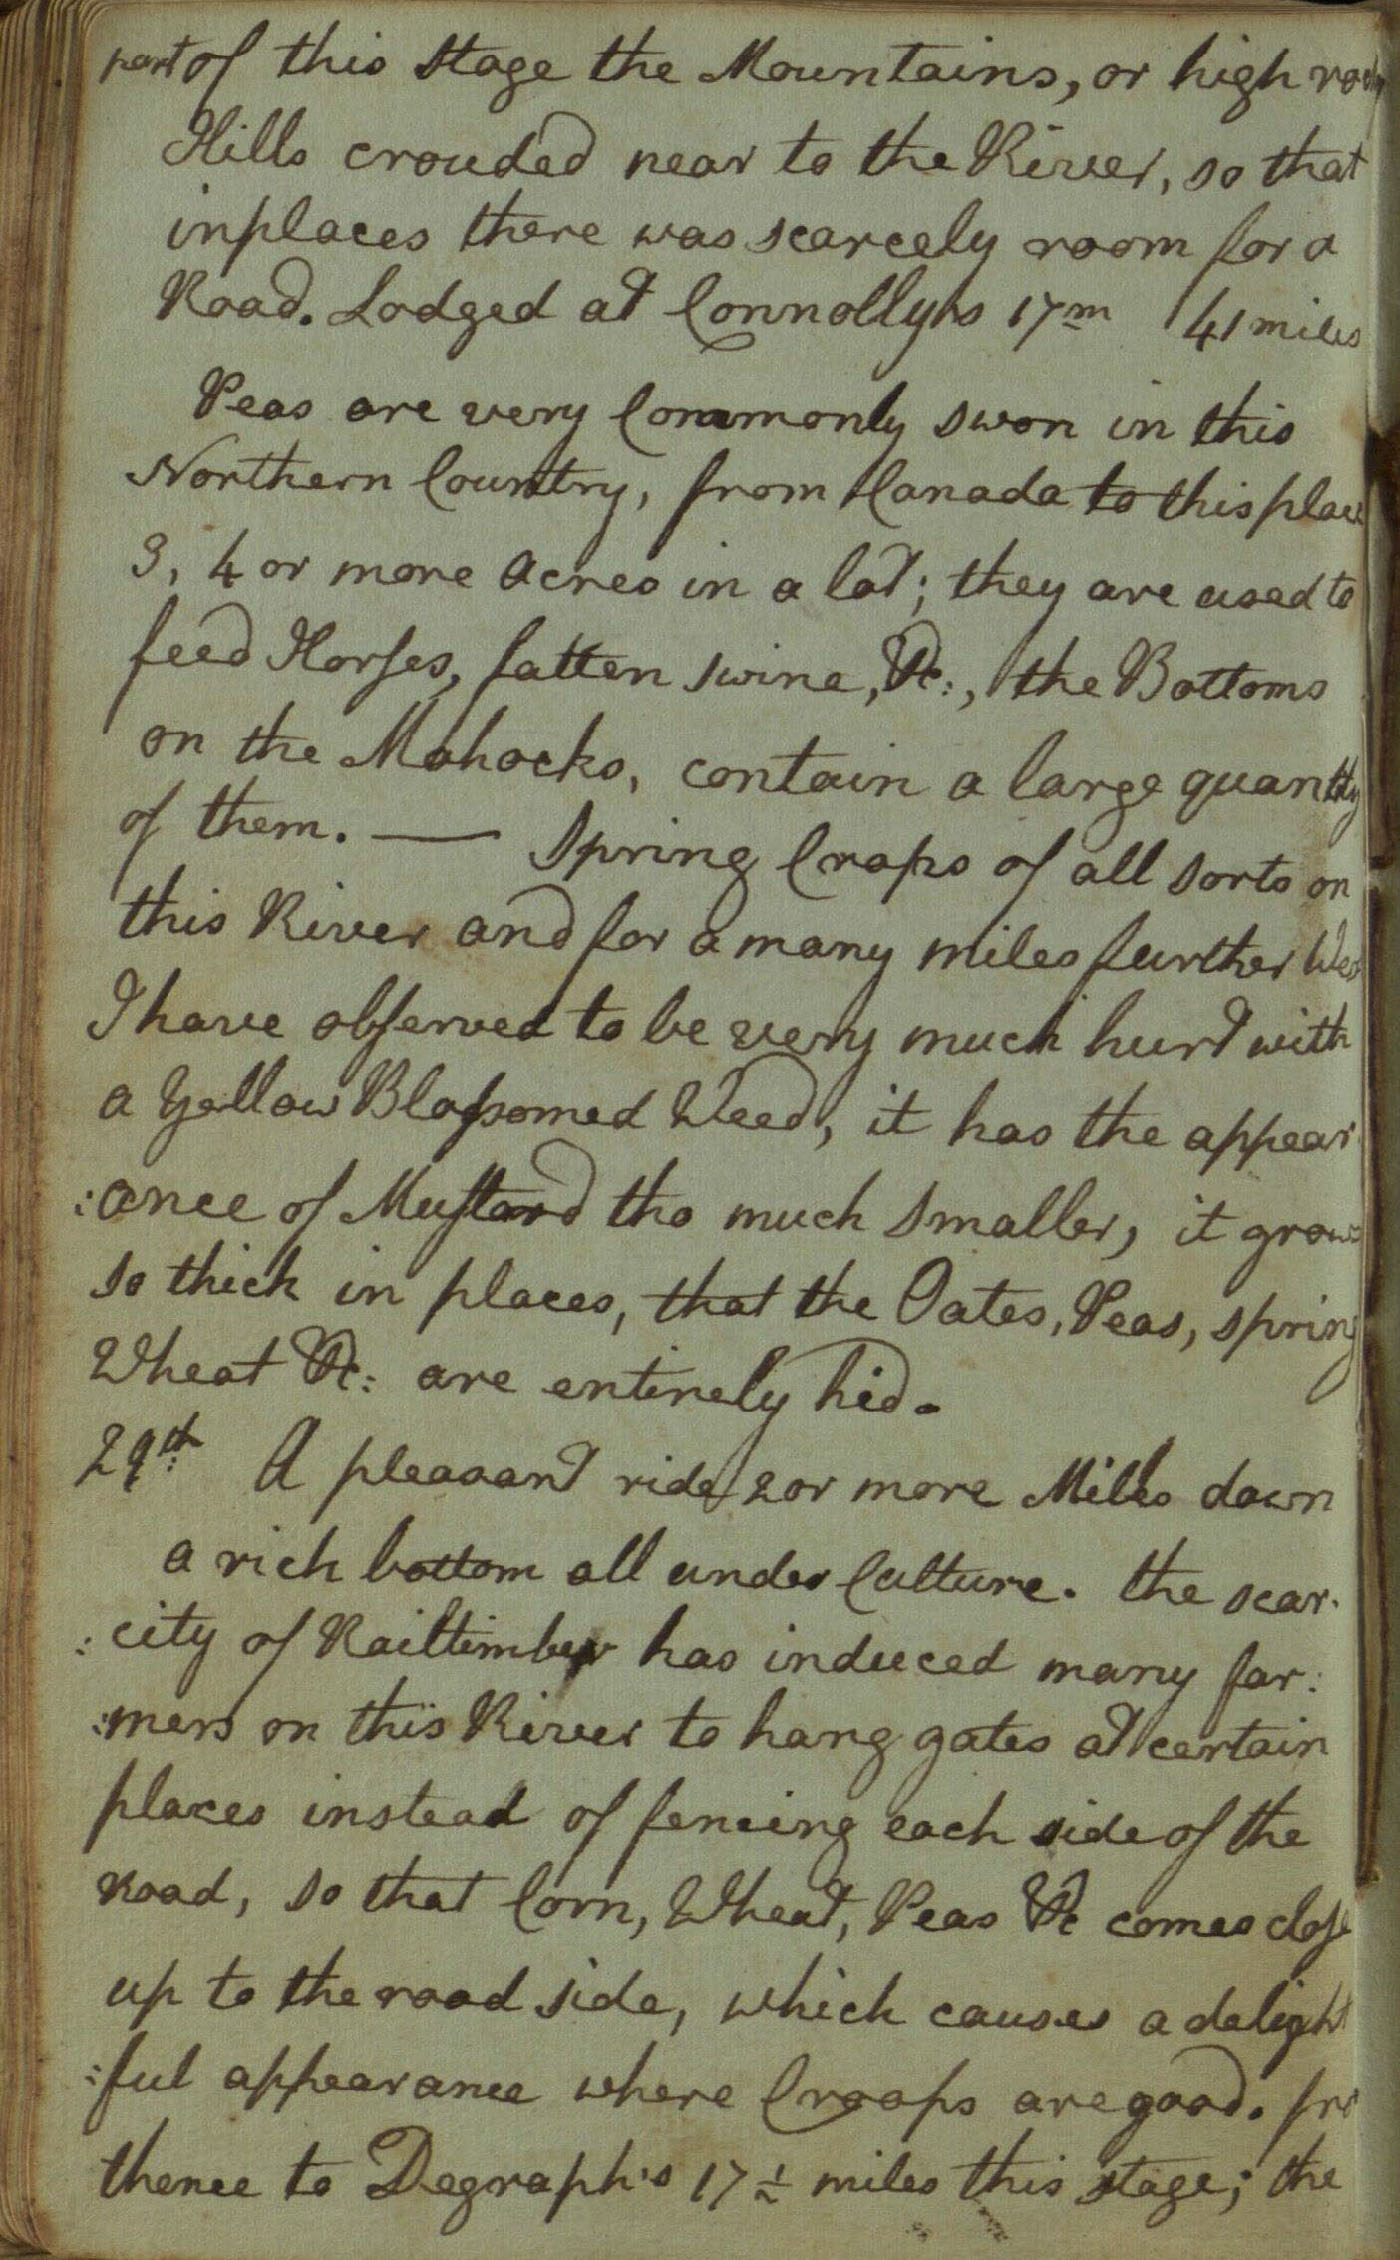 part of this Stage the Mountains, or high rocky
Hills crouded near to the River, so that
inplaces there was scarcely room for a
Road. Lodged at Connollys 17m 41 miles
Peas are very Commonly swon in this
Northern Country, from Canada to this place
3, 4 or more Acres in a lot; they are used to
feed Horses, fatten swine, &c:, the Bottoms
on the Mohocks, contain a large quantity
of them. — Spring Crops of all sorts on
this River and for a many miles further West
I have observed to be very much hurt with
a Yellow Blossomed Weed, it has the appear
:ance of Mustard tho much smaller, it grows
so thick in places, that the Oates, Peas, spring
Wheat &c: are entirely hid.
29th A pleasant ride 2 or more Miles down
a rich bottom all under Culture. the scar:
:city of Railtimber has induced many far:
:mers on this River to hang gates at certain
places instead of fencing each side of the
road, so that Corn, Wheat, Peas &c comes close
up to the road side, which causes a delight
:ful appearance where Croops are good. fro
thence to Degraph's 17 ½ miles this stage; the